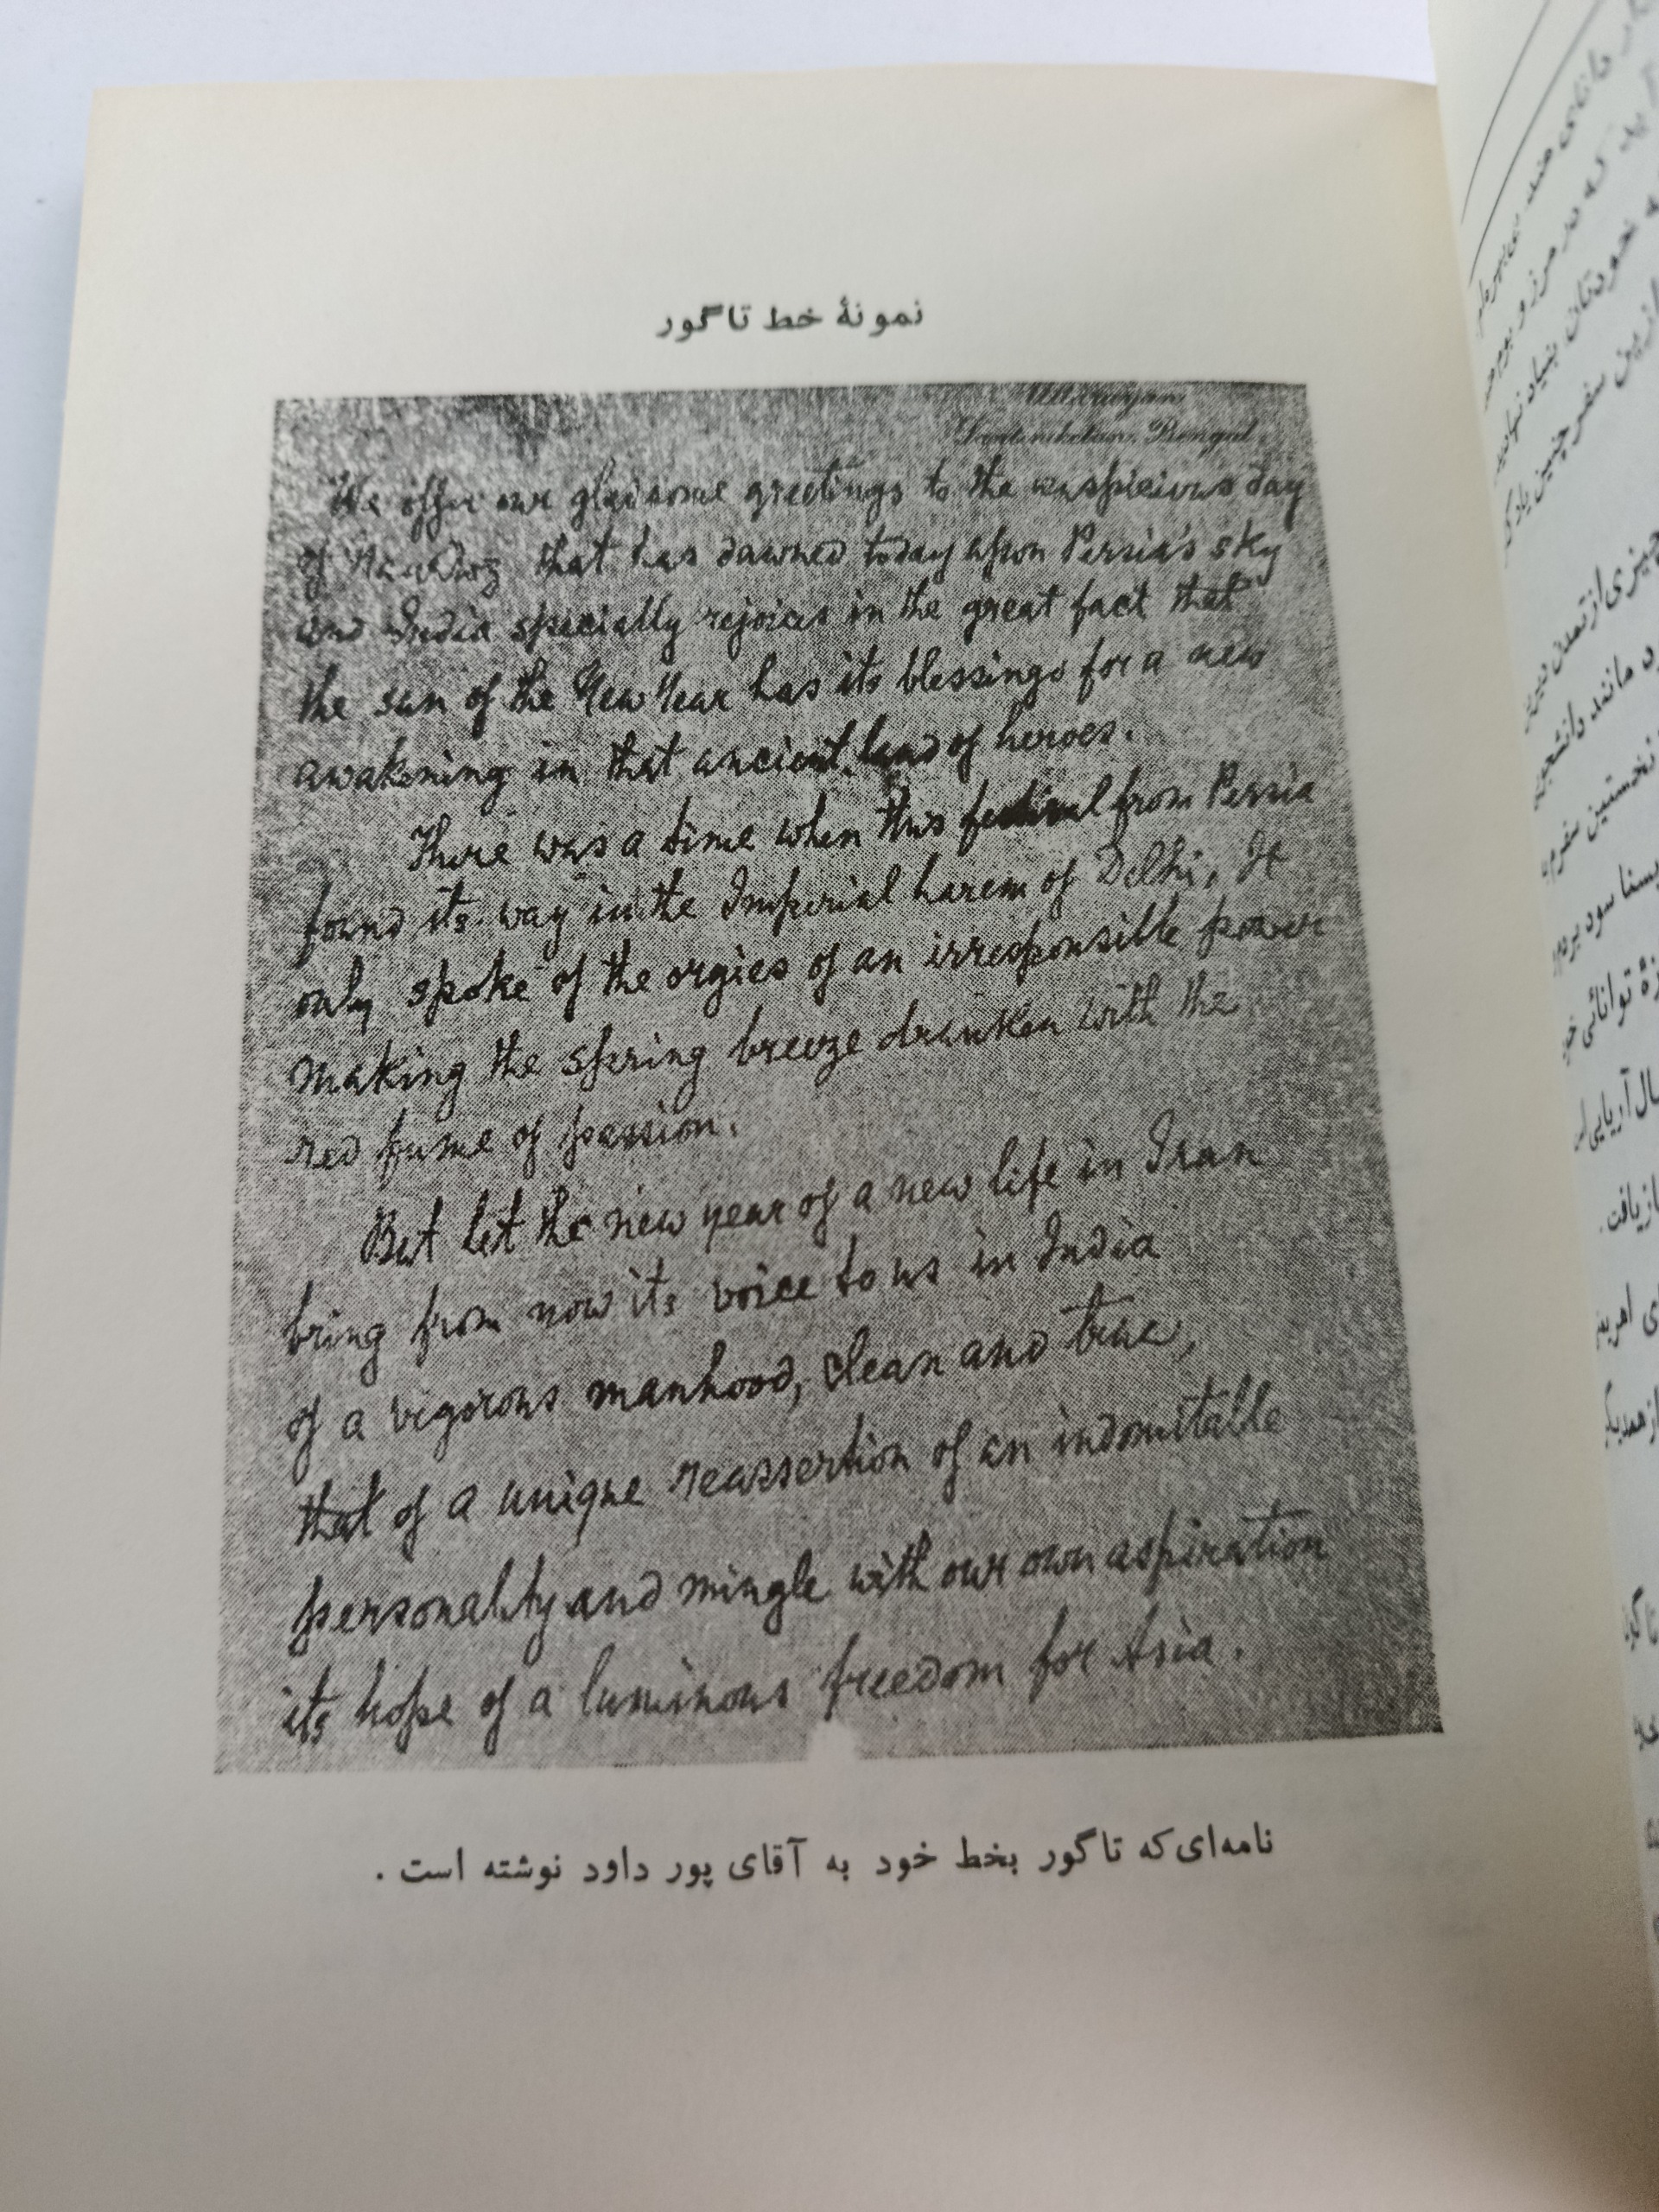 نمونهٔ خط تاگور
Uttarayan
Santiniketan, Bengal.
We offer our gladsome greetings to the auspicious day
of Nawroz that has dawned today upon Persia's sky
and India specially rejoices in the great fact that
the sun of the New Year has its blessings for a new
awakening in that ancient land of heroes.
There was a time when this festival from Persia
found its way in the Imperial harem of Delhi. It
only spoke of the orgies of an irresponsible power
making the spring breeze drunken with the
red fume of passion.
But let the new year of a new life in Iran
bring from now its voice to us in India
of a vigorous manhood, clean and true,
that of a unique reassertion of an indomitable
personality and mingle with our own aspiration
its hope of a luminous freedom for Asia.
نامه‌ای که تاگور بخط خود به آقای پور داود نوشته است .
دانای هند
که در مرز و بوم
خودتان بنیاد نهاده
ازین سفر چنین یاد
چیزی از تمدن دیرین
مانند دانشجوی
نخستین سفرم
سود بردم
توانائی
آریایی
بازیافت.
از همدیگر